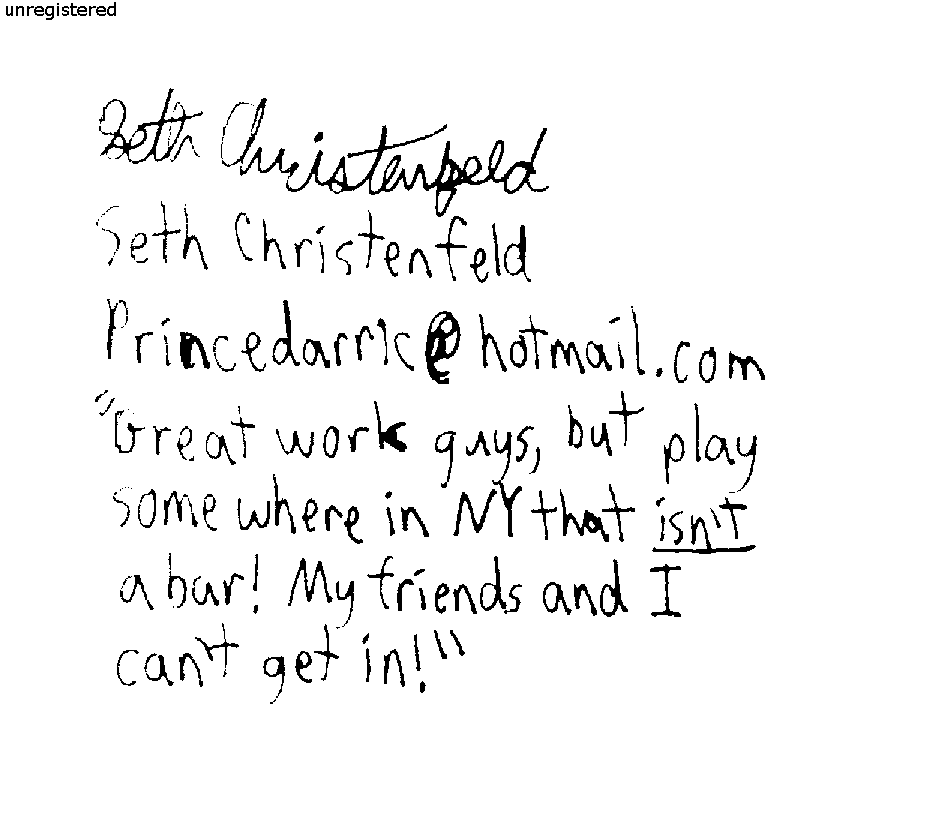 unregistered
Seth Christenfeld
Seth Christenfeld
Princedarric@hotmail.com
"Great work guys, but play
some where in NY that isn't
a bar! My friends and I
can't get in!"